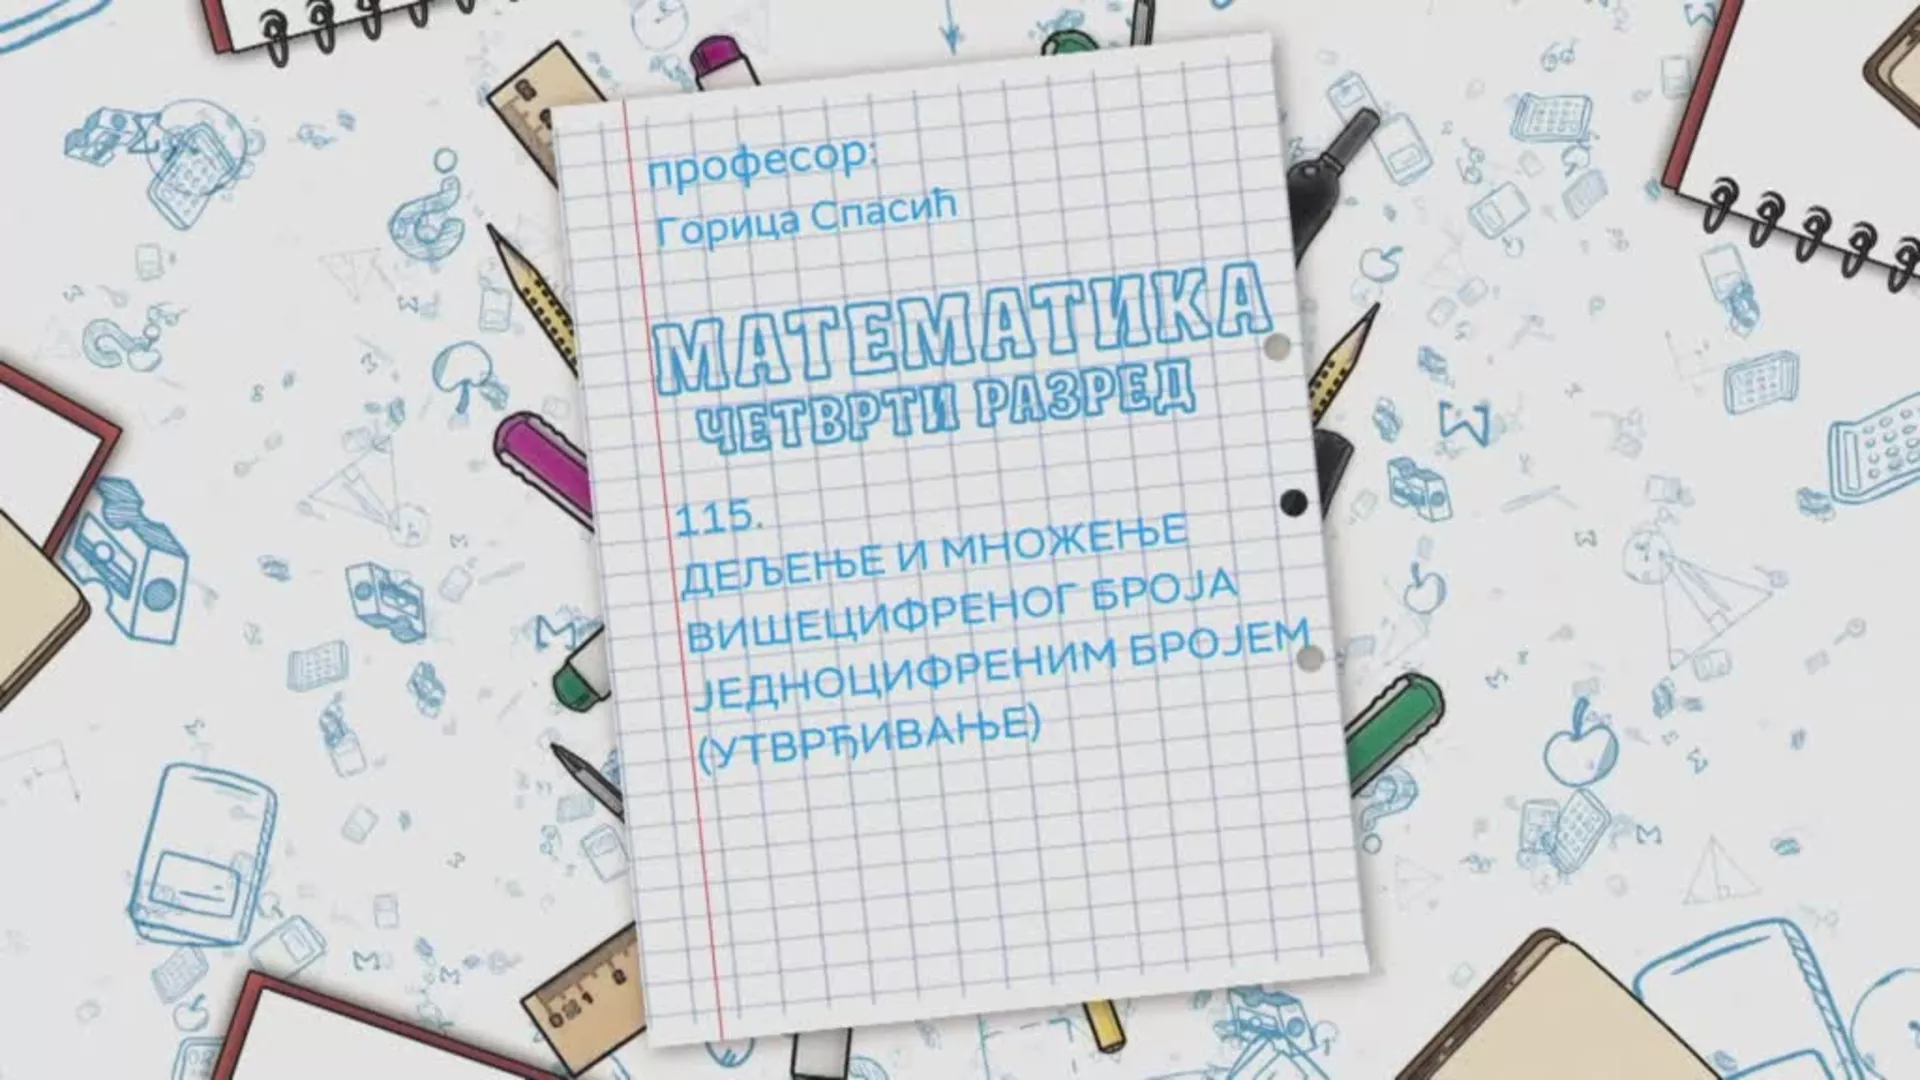 професор:
Горица Спасић
МАТЕМАТИКА
ЧЕТВРТИ РАЗРЕД
115.
ДЕЉЕЊЕ И МНОЖЕЊЕ
ВИШЕЦИФРЕНОГ БРОЈА
ЈЕДНОЦИФРЕНИМ БРОЈЕМ
(УТВРЂИВАЊЕ)